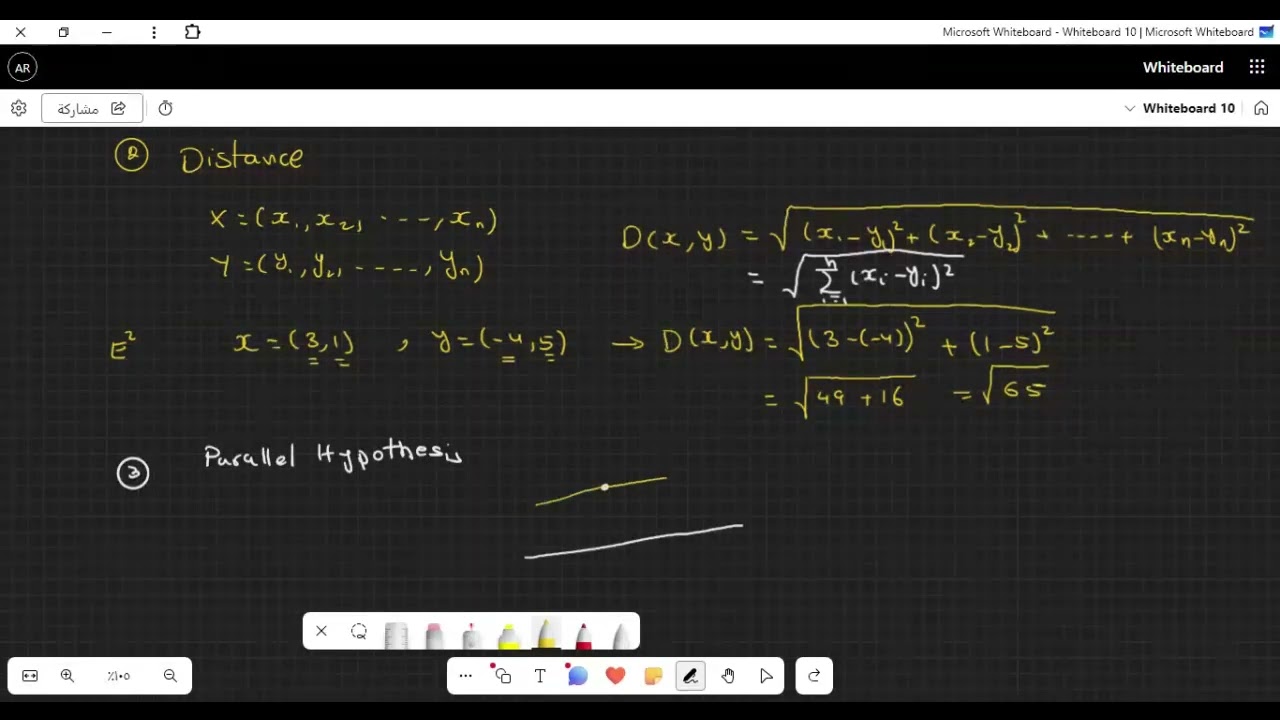 Microsoft Whiteboard - Whiteboard 10 | Microsoft Whiteboard
AR
Whiteboard
مشاركة
Whiteboard 10
② Distance
X = (x₁, x₂, ----, xₙ)
Y = (y₁, y₂, ----, yₙ)
D(x,y) = √((x₁-y₁)² + (x₂-y₂)² + ---- + (xₙ-yₙ)²)
= √(∑ᵢ₌₁ⁿ (xᵢ-yᵢ)²)
E² x = (3,1) , y = (-4,5) → D(x,y) = √((3-(-4))² + (1-5)²)
= √(49+16) = √65
③ Parallel Hypothesis
T
٪١٠٥